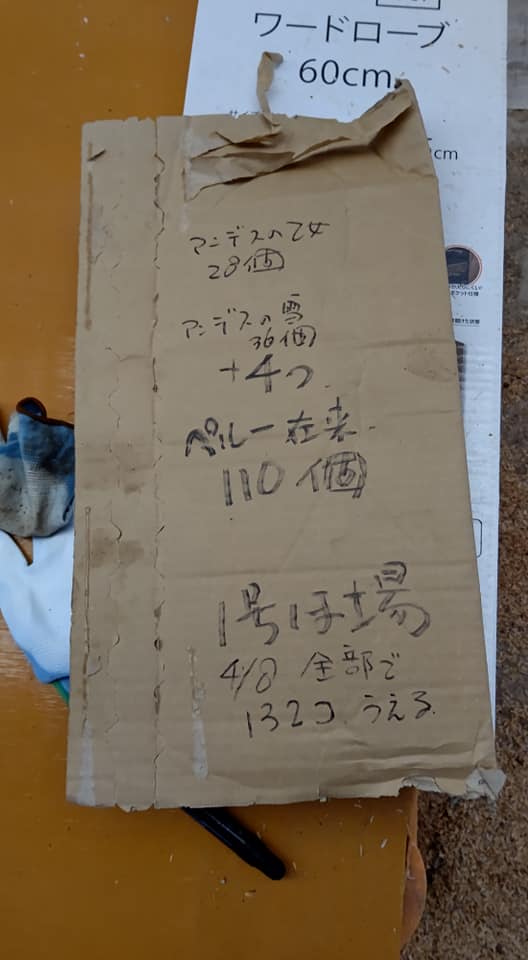 ワードローブ
60cm
アンデスの乙女
28個
アンデスの雪
36個
+4つ
ペルー在来
110個
1号ほ場
4/8 全部で
132コ うえる